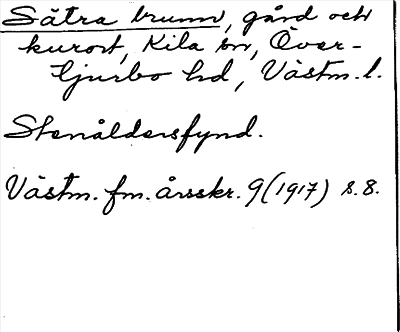 Sätra brunn, gård och
kurort, Kila sn, Över-
tjurbo hd, Västm. l.
Stenåldersfynd.
Västm. fm. årsskr. 9 (1917) s. 8.